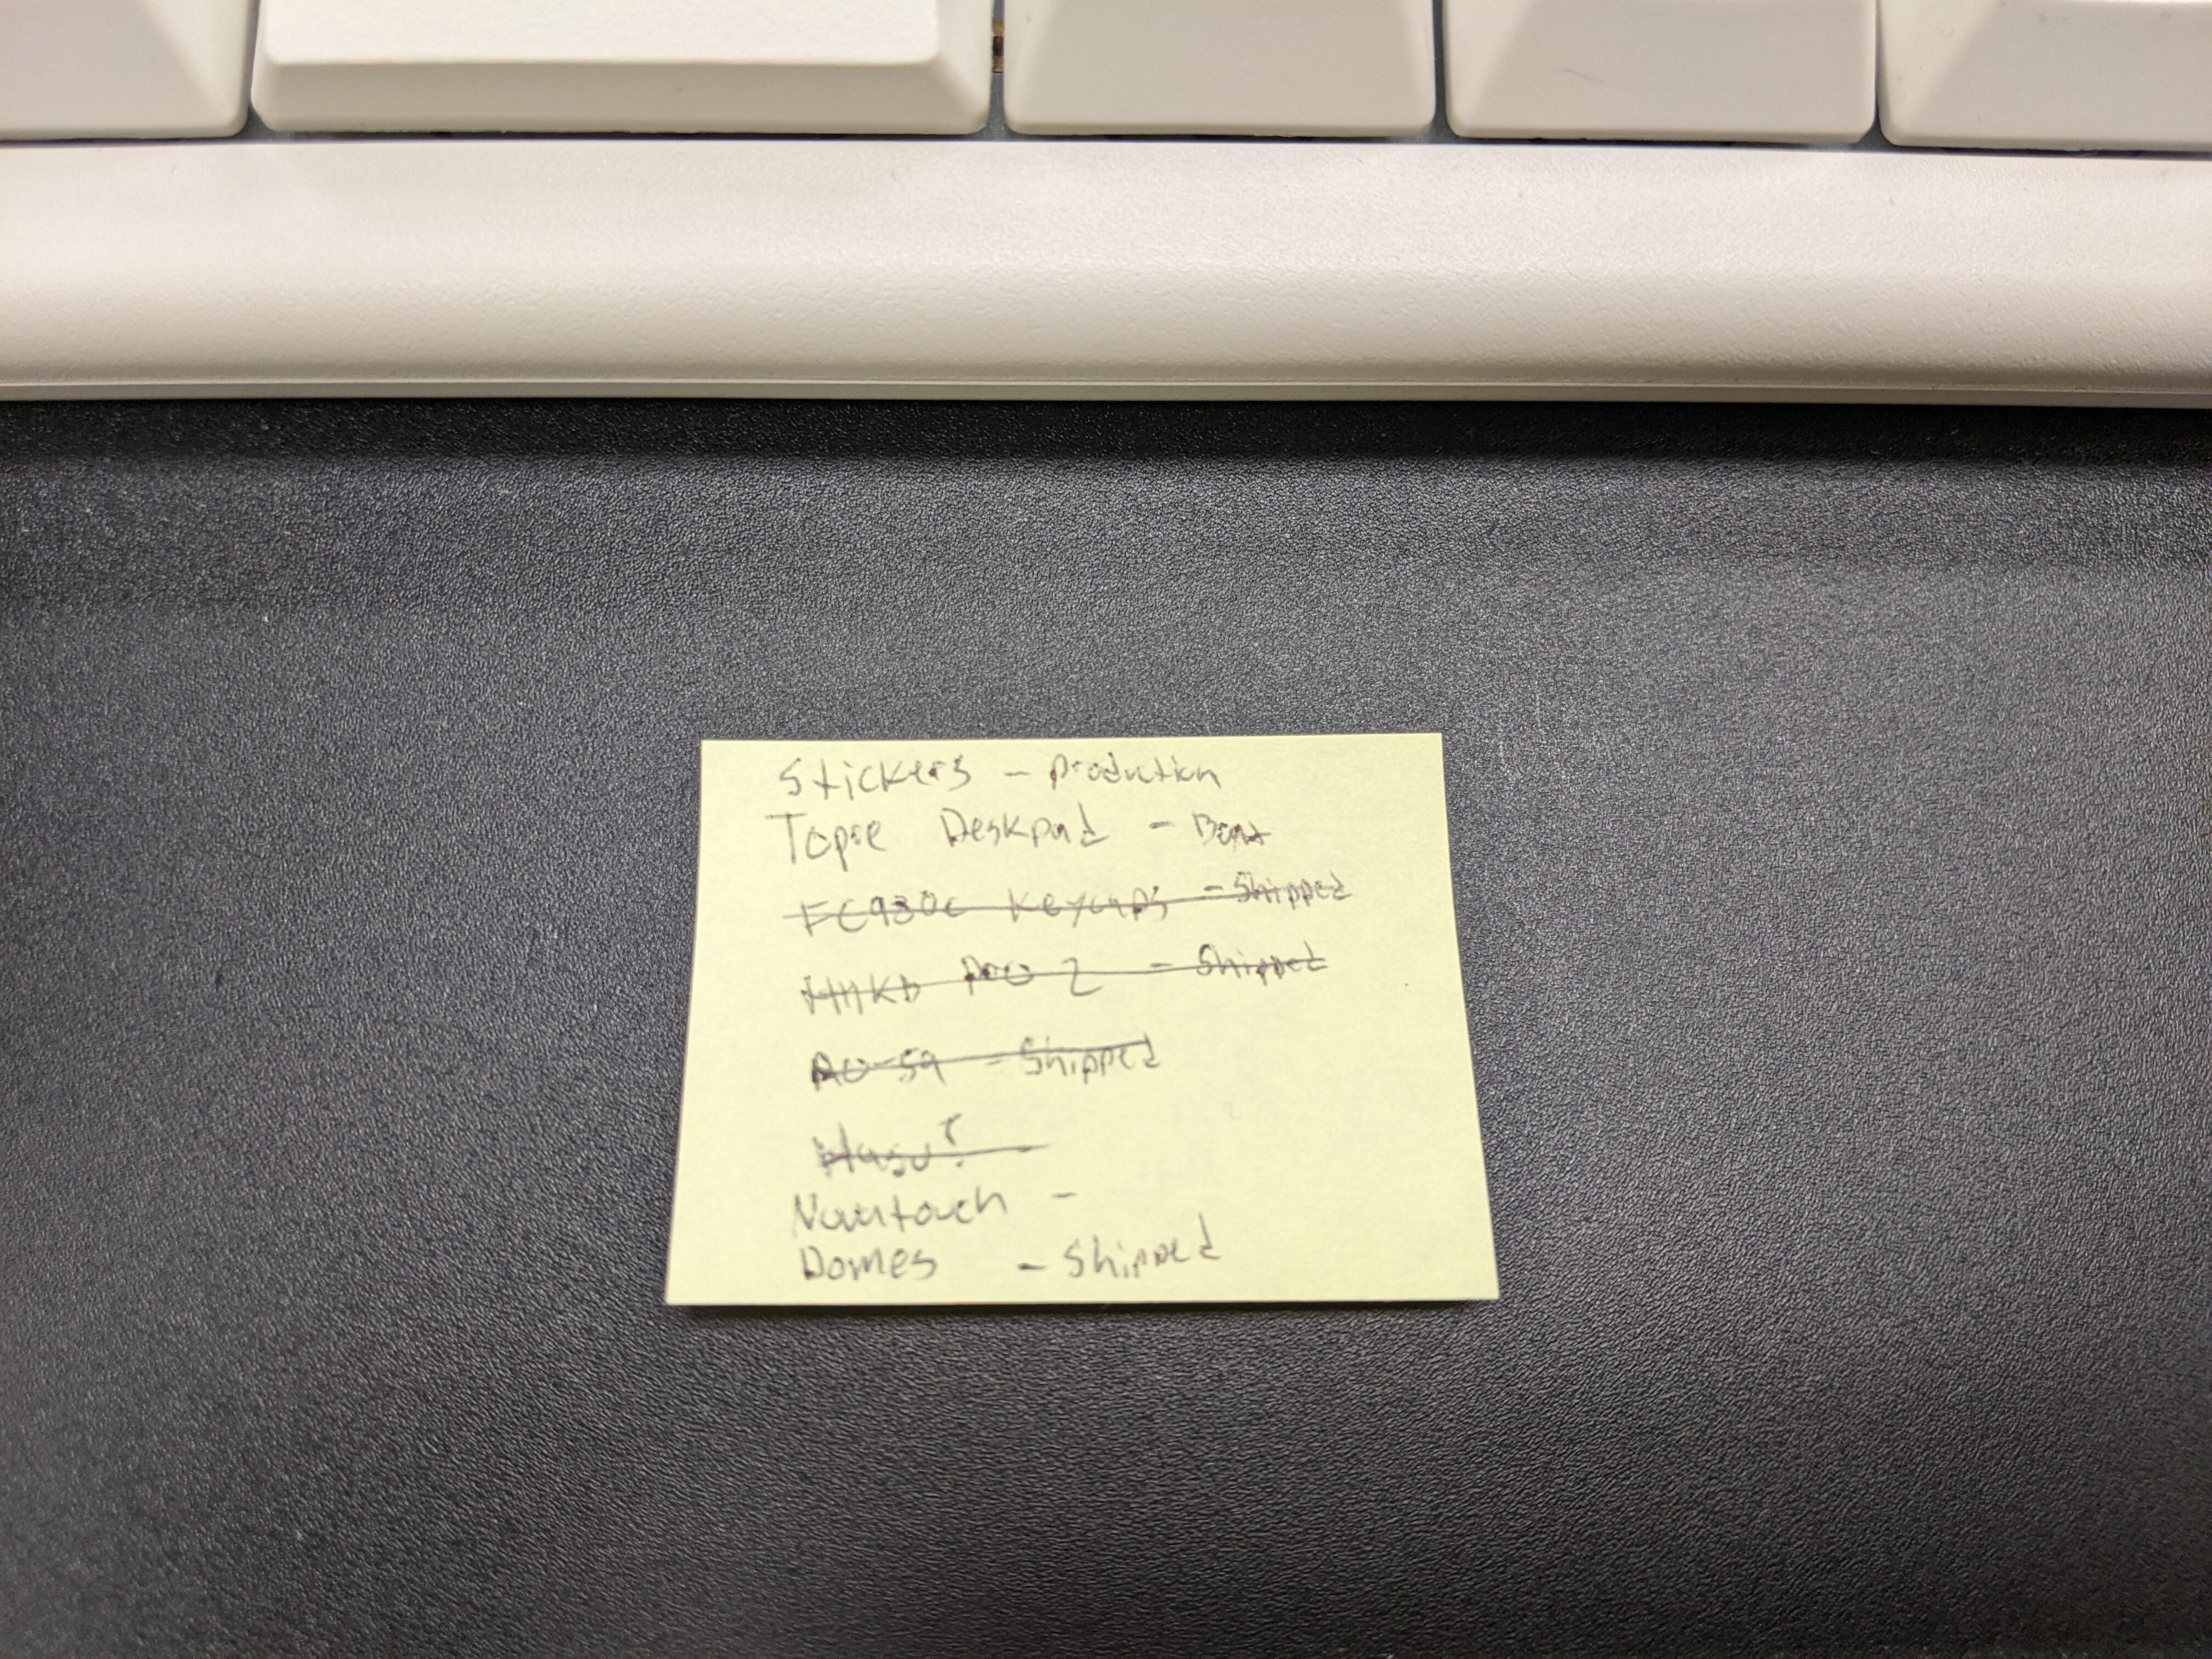 Stickers - production
Topre Deskpad - Boat
FC980c Keycaps - Shipped
HHKB Pro 2 - Shipped
- Shipped
Hasu?
Novatouch -
Domes - Shipped